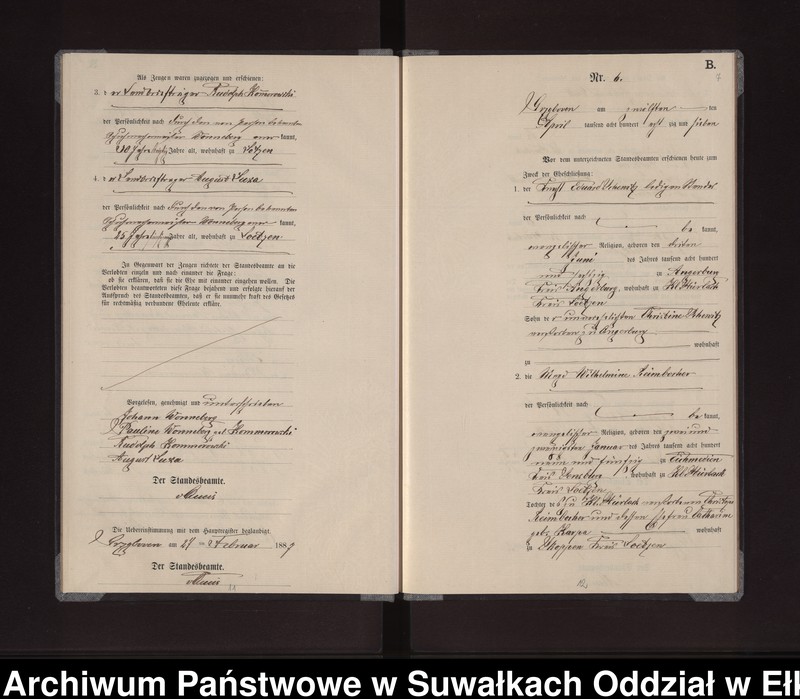 Als Zeugen waren zugezogen und erschienen:
3. der Landbriefträger Rudolph Kommorowski
der Persönlichkeit nach durch den von Person bekannten
Wonneberg kannt,
Jahre alt, wohnhaft zu Lötzen
4. der Landbriefträger August Luxa
der Persönlichkeit nach durch den von Person bekannten
Wonneberg kannt,
25 Jahre alt, wohnhaft zu Loetzen
In Gegenwart der Zeugen richtete der Standesbeamte an die
Verlobten einzeln und nach einander die Frage:
ob sie erklären, daß sie die Ehe mit einander eingehen wollen. Die
Verlobten beantworteten diese Frage bejahend und erfolgte hierauf der
Ausspruch des Standesbeamten, daß er sie nunmehr kraft des Gesetzes
für rechtmäßig verbundene Eheleute erkläre.
Vorgelesen, genehmigt und unterschrieben
Johann Wonneberg
Pauline Wonneberg geb Kommorowski
Rudolph Kommorowski
August Luxa
Der Standesbeamte.
Die Uebereinstimmung mit dem Hauptregister beglaubigt.
am Februar 188
Der Standesbeamte.
B.
Nr. 6.
am zwölften ten
April tausend acht hundert acht zig und sieben
Vor dem unterzeichneten Standesbeamten erschienen heute zum
Zweck der Eheschließung:
1. der Ernst Eduard ledigen Standes
der Persönlichkeit nach
be kannt,
evangelischer Religion, geboren den
Juni des Jahres tausend acht hundert
und sechszig zu Angerburg
Kreis Angerburg, wohnhaft zu Kl. Stürlack
Kreis Loetzen
Sohn der unverehelichten Christine
verstorben zu Angerburg
wohnhaft
zu
2. die Magd Wilhelmine Reimbacher
der Persönlichkeit nach
be kannt,
evangelischer Religion, geboren den zwei und
zwanzigsten Januar des Jahres tausend acht hundert
neun und fünfzig zu
Kreis Sensburg, wohnhaft zu Kl. Stürlack
Kreis Loetzen
Tochter des zu Kl. Stürlack verstorbenen Christian
Reimbacher und dessen Ehefrau Catharine
geb. Karpa wohnhaft
zu Skoppen Kreis Loetzen
Archiwum Państwowe w Suwałkach Oddział w Eł